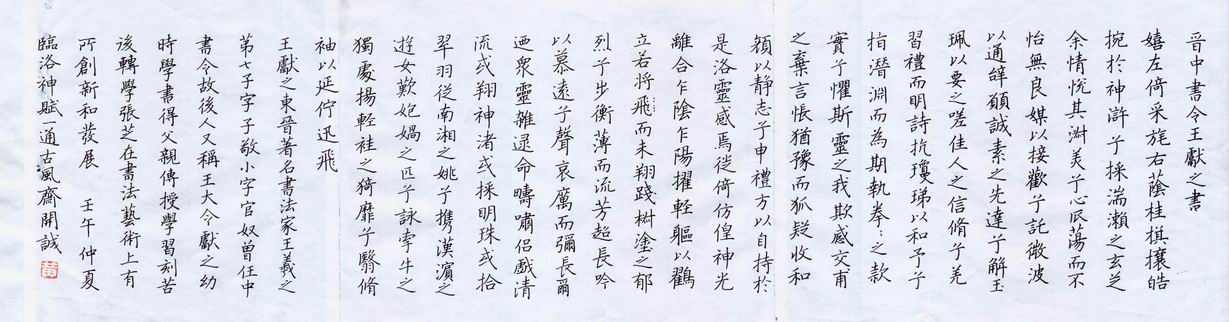 晉中書令王獻之書
嬉左倚采旄右蔭桂棋攘皓
捥於神滸兮採湍瀨之玄芝
余情悅其淋美兮心㤆蕩而不
怡無良媒以接歡兮託微波
以通辭願誠素之先達兮解玉
珮以要之嗟佳人之信脩兮羌
習禮而明詩抗瓊珶以和予兮
指潛淵而為期執拳〻之款
實兮懼斯靈之我欺感交甫
之棄言悵猶豫而狐疑收和
顏以靜志兮申禮方以自持於
是洛靈感焉徙倚仿偟神光
離合乍陰乍陽擢輕軀以鶴
立若將飛而未翔踐樹塗之郁
烈兮步衡薄而流芳超長吟
以慕遠兮聲哀厲而彌長爾
迺衆靈雜遝命疇嘯侶戲清
流或翔神渚或採明珠或拾
翠羽從南湘之姚兮攜漢濱之
遊女歎匏媧之匹兮詠牽牛之
獨處揚輕袿之猗靡兮翳脩
袖以延佇迅飛
王獻之東晉著名書法家王義之
苐七子字子敬小字官奴曾任中
書令故後人又稱王大令獻之幼
時學書得父親傳授學習刻苦
後轉學張芝在書法藝術上有
所創新和發展 壬午仲夏
臨洛神賦一通古風齋開誠
黃